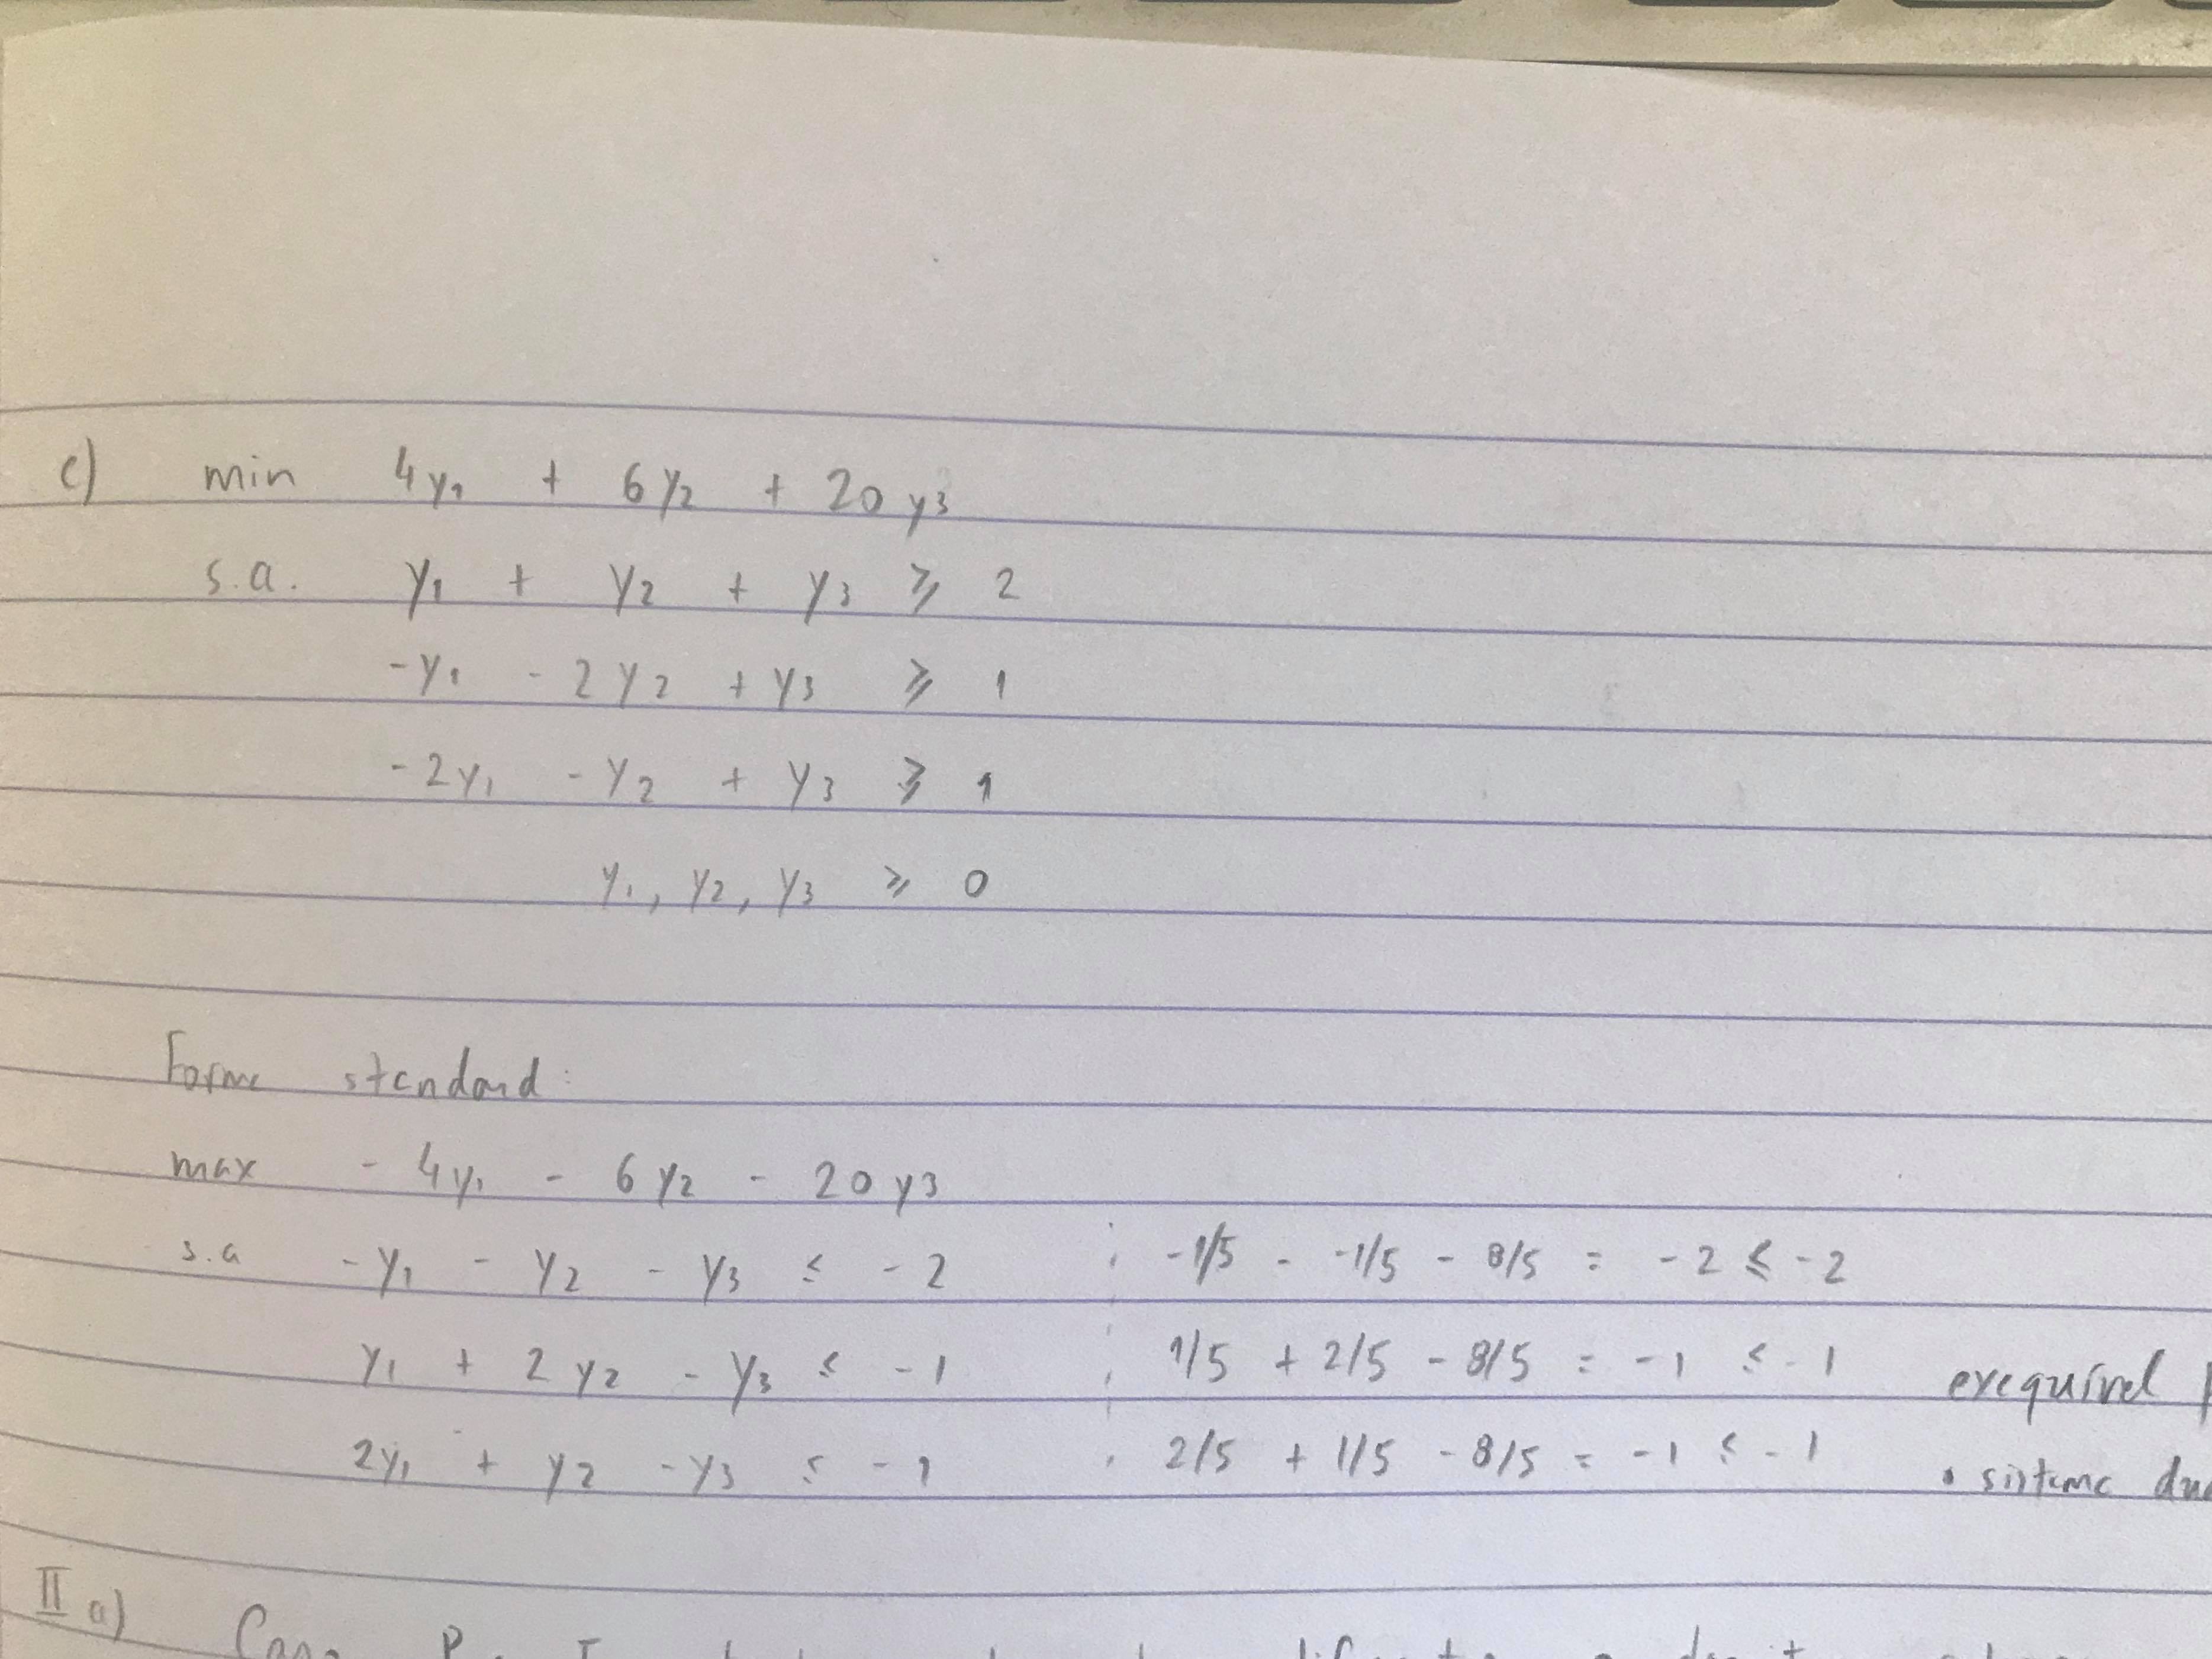 c) min 4y₁ + 6y₂ + 20y₃
s.a. y₁ + y₂ + y₃ ⩾ 2
-y₁ - 2y₂ + y₃ ⩾ 1
-2y₁ - y₂ + y₃ ⩾ 1
y₁, y₂, y₃ ⩾ 0
Forma standard:
max - 4y₁ - 6y₂ - 20y₃
s.a -y₁ - y₂ - y₃ ≤ -2 -1/5 - -1/5 - 8/5 = -2 ≤ -2
y₁ + 2y₂ - y₃ ≤ -1 1/5 + 2/5 - 8/5 = -1 ≤ -1 exequível
2y₁ + y₂ - y₃ ≤ -1 2/5 + 1/5 - 8/5 = -1 ≤ -1 sistema
II a)